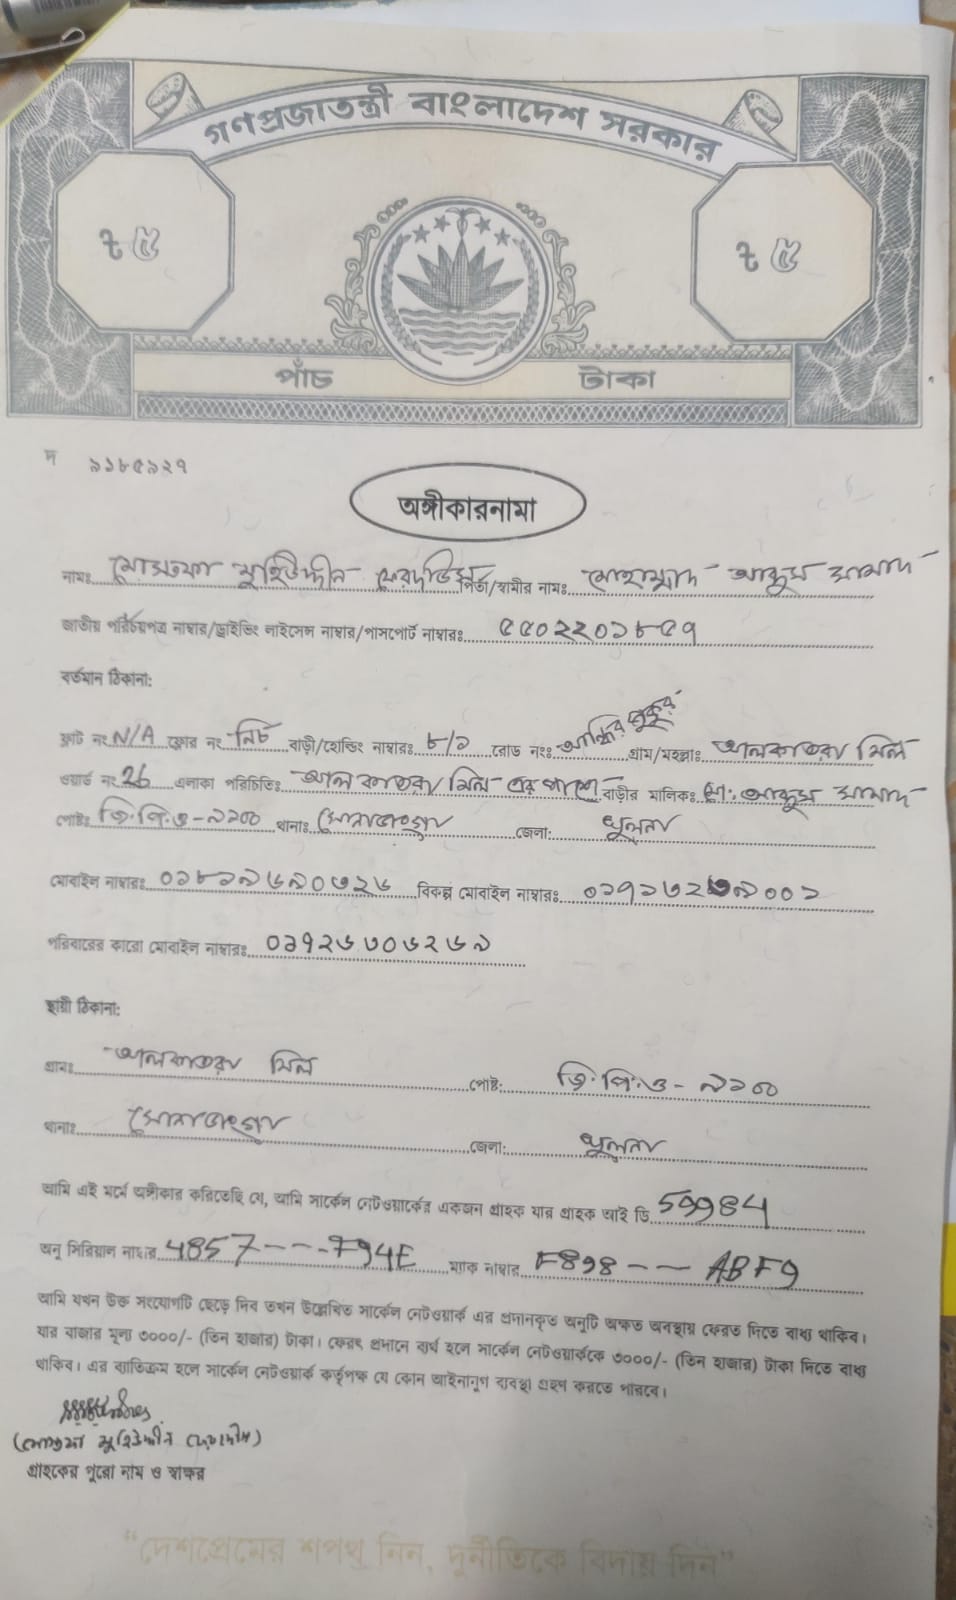 গণপ্রজাতন্ত্রী বাংলাদেশ সরকার
৳ ৫ ৳ ৫
পাঁচ টাকা
দ ৯১৮৫৯২৭
অঙ্গীকারনামা
নামঃ মোস্তফা মুহিউদ্দীন ফেরদৌস পিতা/স্বামীর নামঃ মোহাম্মাদ আব্দুস সামাদ
জাতীয় পরিচয়পত্র নাম্বার/ড্রাইভিং লাইসেন্স নাম্বার/পাসপোর্ট নাম্বারঃ ৫৫০২২০১৮৫৭
বর্তমান ঠিকানা:
ফ্লাট নং N/A ফ্লোর নং নিচ বাড়ী/হোল্ডিং নাম্বারঃ ৮/১ রোড নংঃ পুকুর গ্রাম/মহল্লাঃ আলকাতরা মিল
ওয়ার্ড নং 26 এলাকা পরিচিতিঃ আলকাতরা মিল এর পাশে বাড়ীর মালিকঃ মো: আব্দুস সামাদ
পোষ্টঃ জি.পি.ও-৯১০০ থানাঃ সোনাডাংগা জেলা: খুলনা
মোবাইল নাম্বারঃ ০১৮১৯৬৯০৩২৬ বিকল্প মোবাইল নাম্বারঃ
পরিবারের কারো মোবাইল নাম্বারঃ ০১৭২৬৩০৬২৬৯
স্থায়ী ঠিকানা:
গ্রামঃ আলকাতরা মিল পোষ্ট: জি.পি.ও-৯১০০
থানাঃ সোনাডাংগা জেলা: খুলনা
আমি এই মর্মে অঙ্গীকার করিতেছি যে, আমি সার্কেল নেটওয়ার্কের একজন গ্রাহক যার গ্রাহক আই ডি 59984
অনু সিরিয়াল নাম্বার 4857---F94E ম্যাক নাম্বার F898-- ABF9
আমি যখন উক্ত সংযোগটি ছেড়ে দিব তখন উল্লেখিত সার্কেল নেটওয়ার্ক এর প্রদানকৃত অনুটি অক্ষত অবস্থায় ফেরত দিতে বাধ্য থাকিব।
যার বাজার মূল্য ৩০০০/- (তিন হাজার) টাকা। ফেরৎ প্রদানে ব্যর্থ হলে সার্কেল নেটওয়ার্ককে ৩০০০/- (তিন হাজার) টাকা দিতে বাধ্য
থাকিব। এর ব্যতিক্রম হলে সার্কেল নেটওয়ার্ক কর্তৃপক্ষ যে কোন আইনানুগ ব্যবস্থা গ্রহণ করতে পারবে।
(মোস্তফা মুহিউদ্দীন ফেরদৌস)
গ্রাহকের পুরো নাম ও স্বাক্ষর
“দেশপ্রেমের শপথ নিন, দুর্নীতিকে বিদায় দিন”